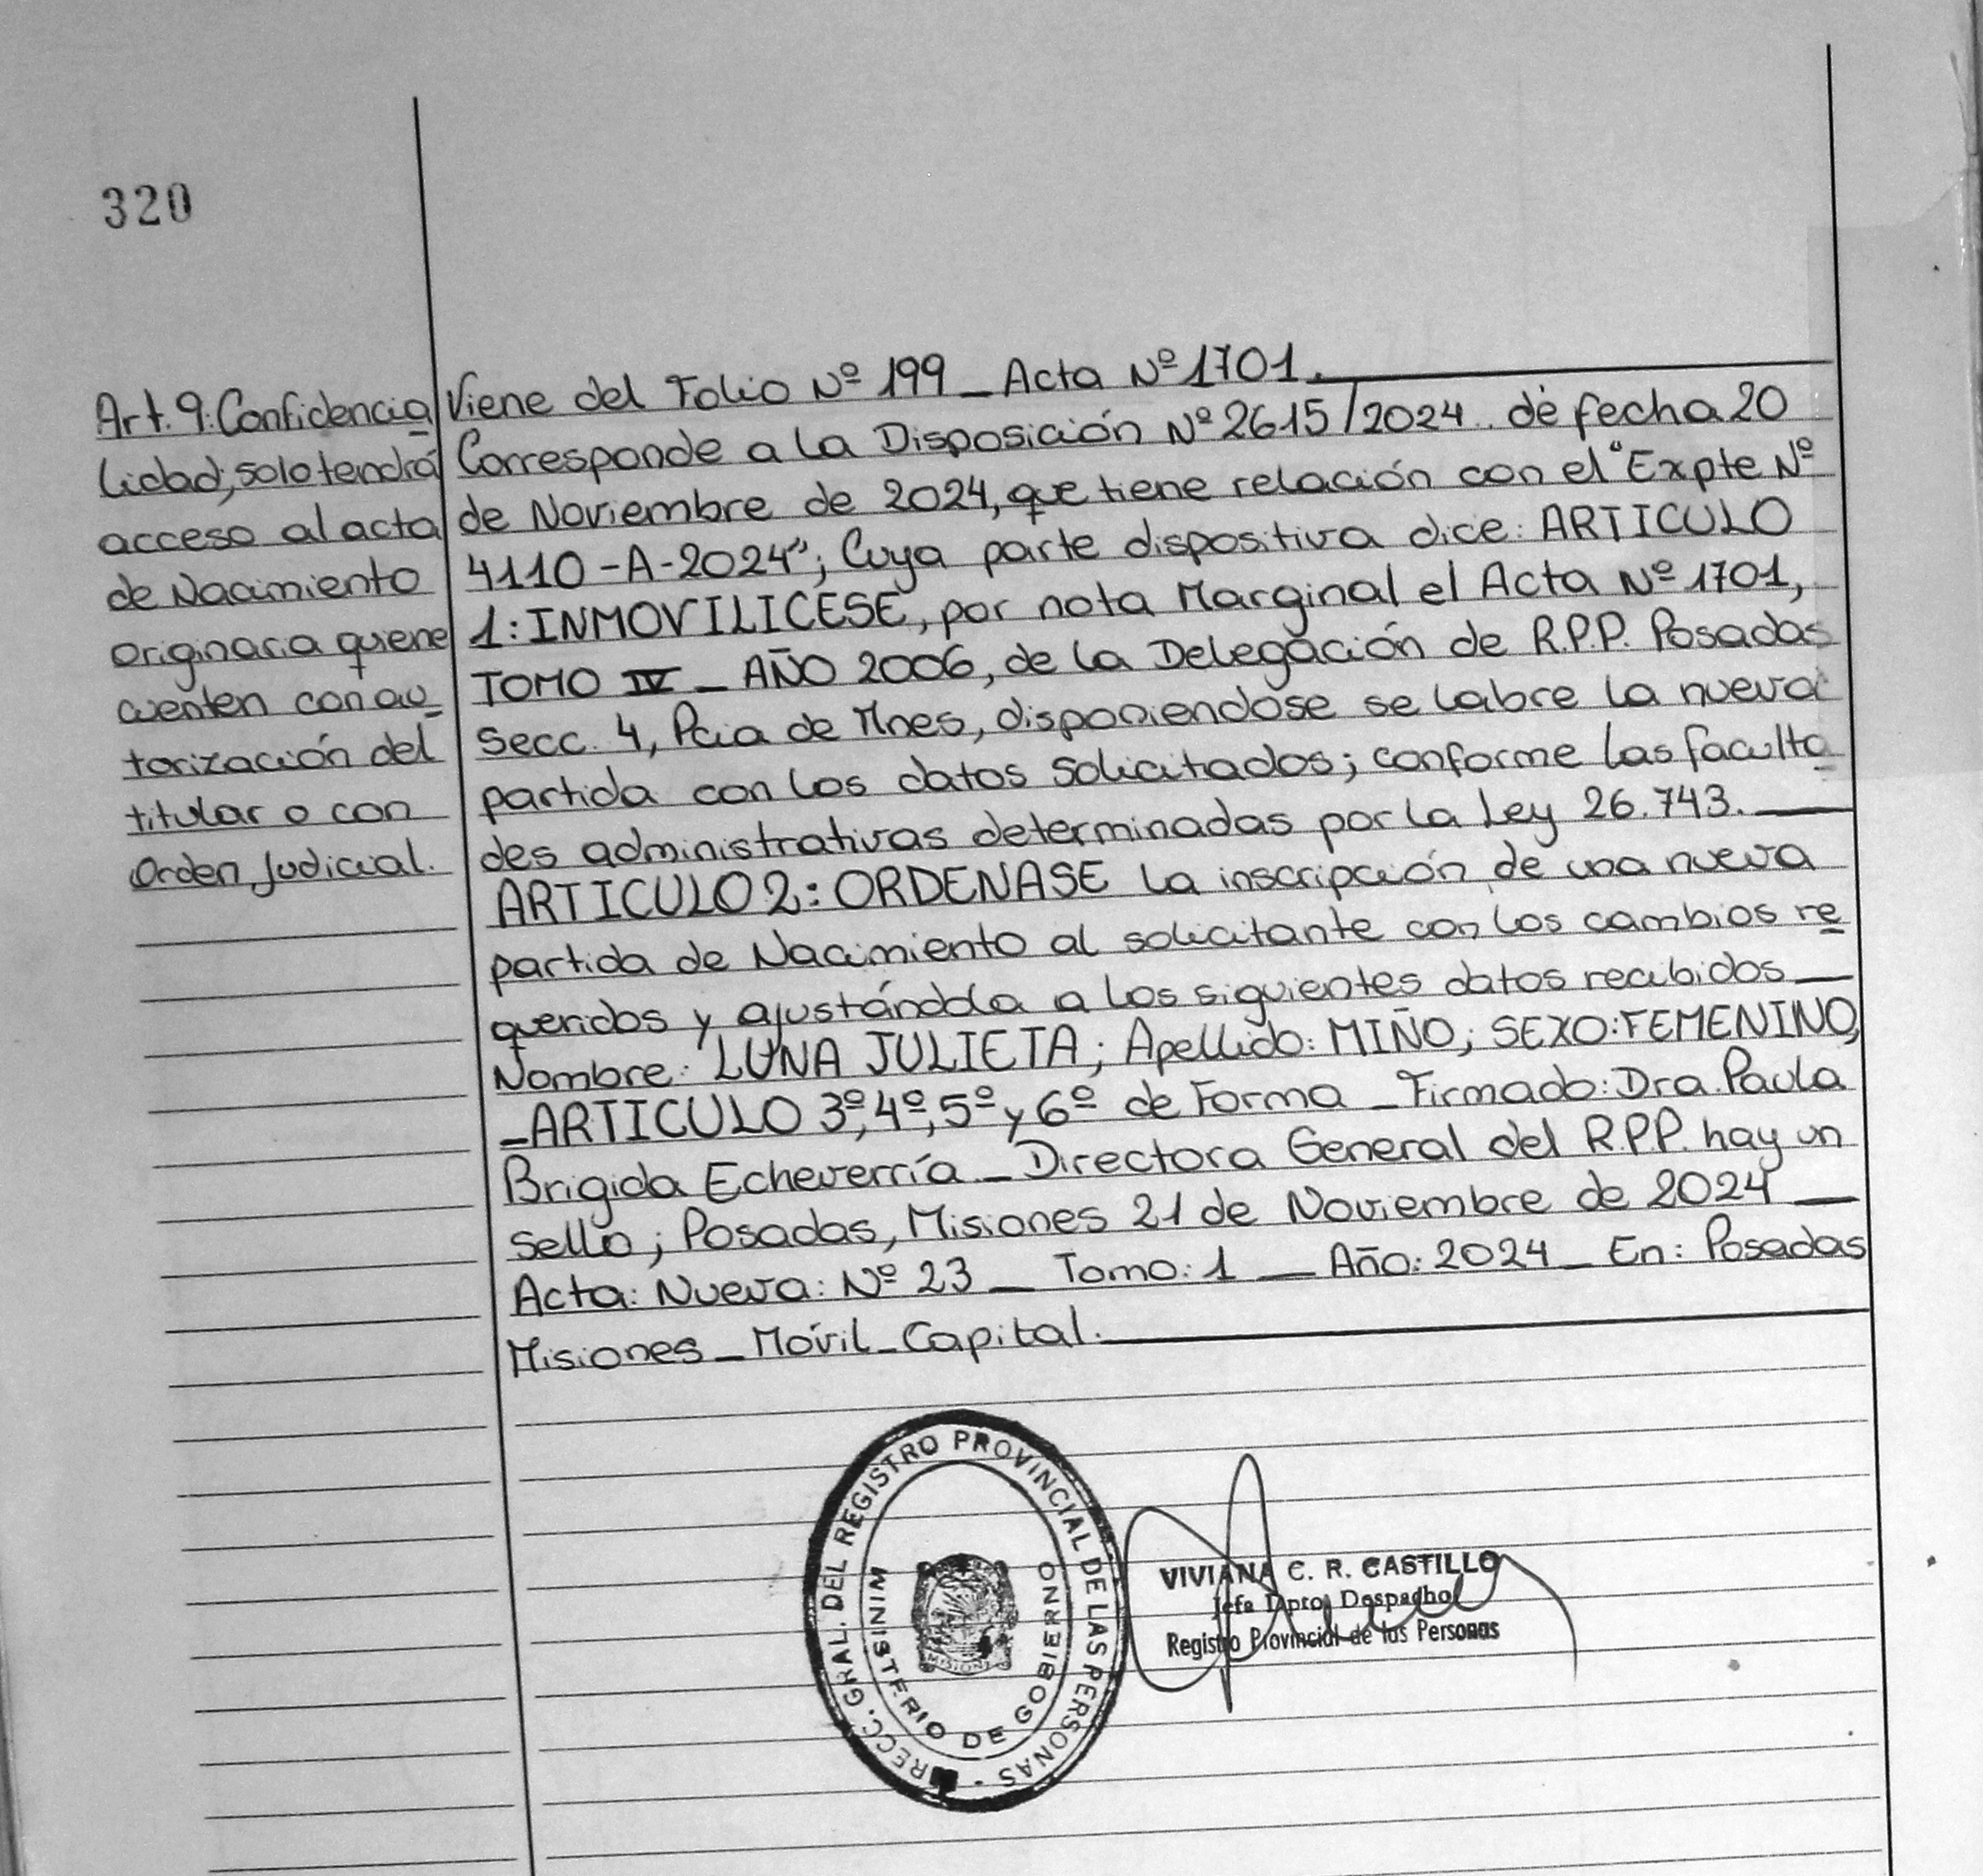 320
Art. 9: Confidencia
lidad; solo tendrá
acceso al acta
de Nacimiento
originaria quiene
cuenten con au
torización del
titular o con
Orden Judicial.
Viene del Folio Nº 199 _ Acta Nº 1701.
Corresponde a la Disposición Nº 2615/2024. de fecha 20
de Noviembre de 2024, que tiene relación con el "Expte Nº
4110-A-2024"; Cuya parte dispositiva dice: ARTICULO
1: INMOVILICESE, por nota Marginal el Acta Nº 1701,
TOMO IV _ AÑO 2006, de la Delegación de R.P.P. Posadas
Secc. 4, Pcia de Mnes, disponiendose se labre la nueva
partida con los datos solicitados; conforme las faculta
des administrativas determinadas por la Ley 26.743.
ARTICULO 2: ORDENASE la inscripción de una nueva
partida de Nacimiento al solicitante con los cambios re
queridos y ajustándola a los siguientes datos recibidos
Nombre: LUNA JULIETA; Apellido: MIÑO; SEXO: FEMENINO,
_ARTICULO 3º, 4º, 5º y 6º de Forma _ Firmado: Dra. Paula
Brigida Echeverría _ Directora General del R.P.P. hay un
sello; Posadas, Misiones 21 de Noviembre de 2024
Acta: Nueva: Nº 23 _ Tomo: 1 _ Año: 2024 _ En: Posadas
Misiones _ Móvil _ Capital.
RECC. GRAL. DEL REGISTRO PROVINCIAL DE LAS PERSONAS
MINISTERIO DE GOBIERNO
MISIONES
VIVIANA C. R. CASTILLO
Jefa Dpto. Despacho
Registro Provincial de las Personas